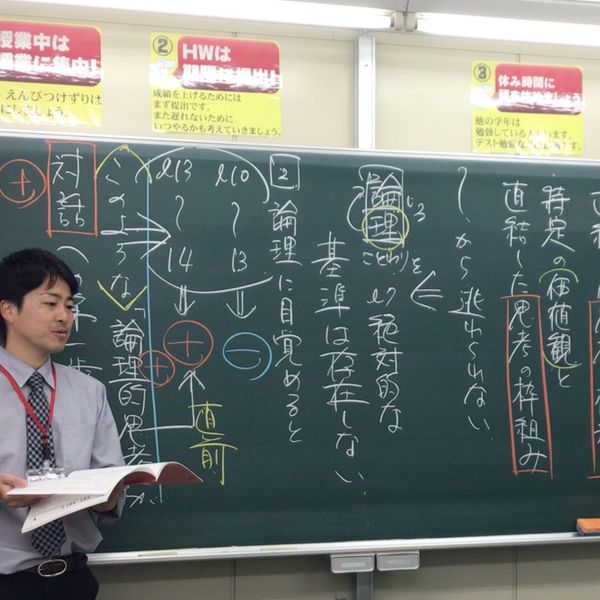 授業中は
授業に集中!
えんぴつけずりは
にしましょう。
②
HWは
期限に提出!
成績を上げるためには
まず提出です。
また遅れないために
いつやるかも考えていきましょう。
③
休み時間に
他の学年は
勉強している
います。
特定の価値観と
直結した思考の枠組み
〜から逃れられない
論理
ことわり
を
絶対的な
基準は存在しない
2 論理に目覚めると
ℓ10
〜
13
⇓
−
ℓ13
〜
14
⇓
+
直前
このような「論理的思考」が
+
+
対話
への第一歩